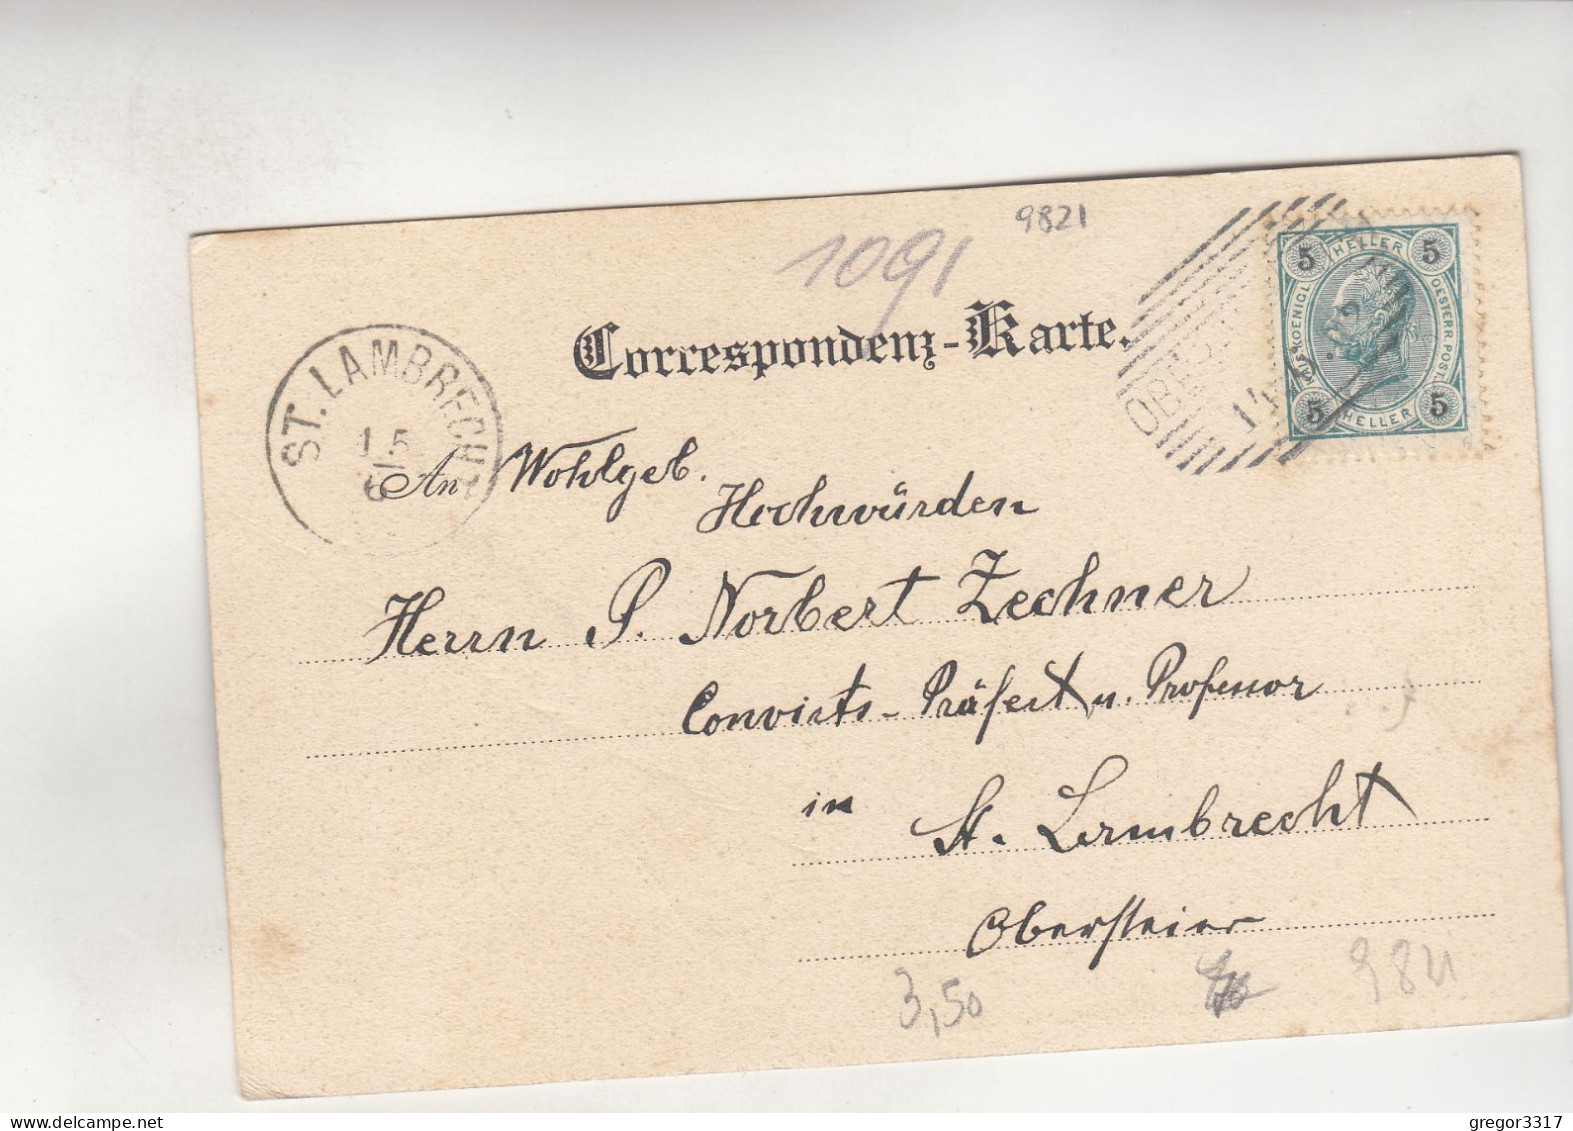 9821
1091
5 HELLER 5
KAIS. KOENIGL. OESTERR. POST.
5 HELLER 5
Correspondenz-Karte.
ST. LAMBRECHT
15
6
An Wohlgeb.
Hochwürden
Herrn P. Norbert Zechner
Convicts-Präfect u. Professor
in St. Lambrecht
Obersteier
3,50
9821
gregor3317